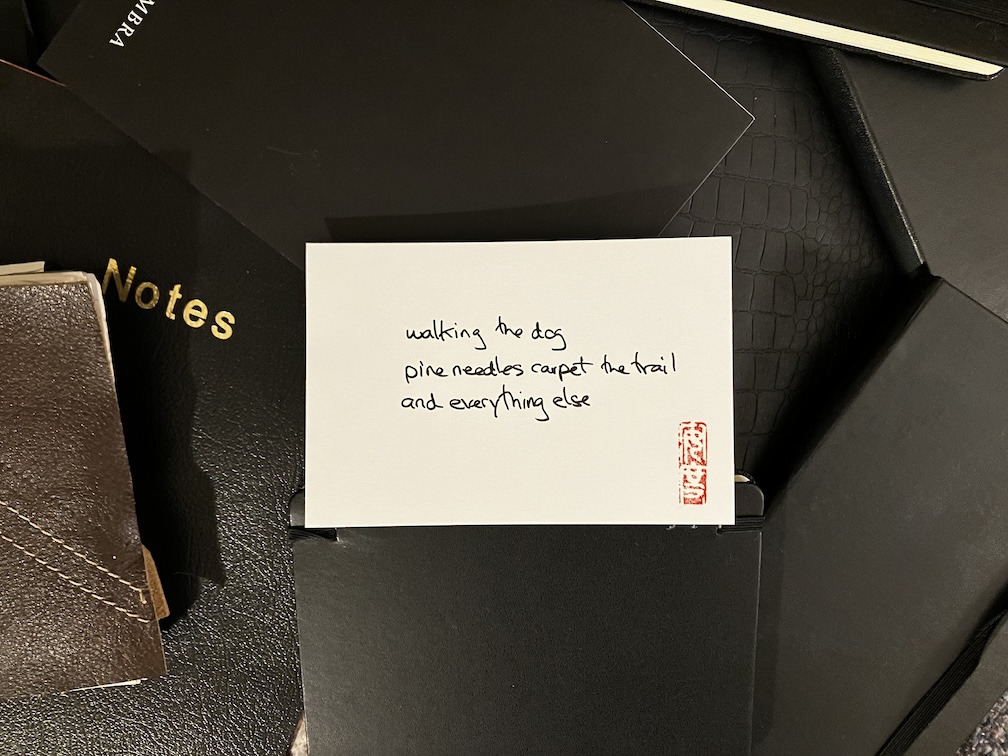 MBRA
Notes
walking the dog
pine needles carpet the trail
and everything else